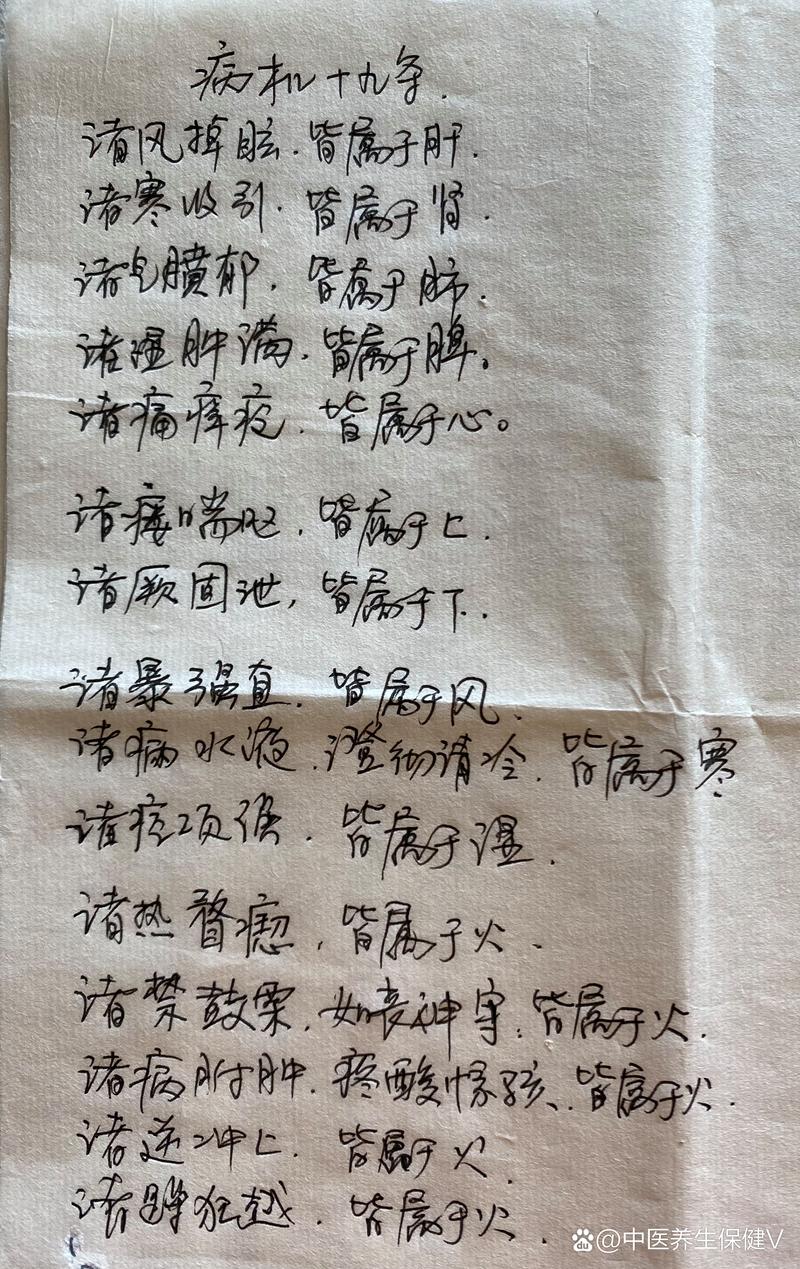 病机十九条.
诸风掉眩.皆属于肝.
诸寒收引.皆属于肾.
诸气膹郁,皆属于肺.
诸湿肿满.皆属于脾。
诸痛痒疮.皆属于心。
诸痿喘呕.皆属于上.
诸厥固泄,皆属于下.
诸暴强直.皆属于风.
诸病水液.澄彻清冷.皆属于寒
诸痉项强.皆属于湿.
诸热瞀瘛,皆属于火.
诸禁鼓栗.如丧神守.皆属于火.
诸病胕肿.疼酸惊骇.皆属于火.
诸逆冲上.皆属于火.
诸躁狂越.皆属于火.
@中医养生保健V